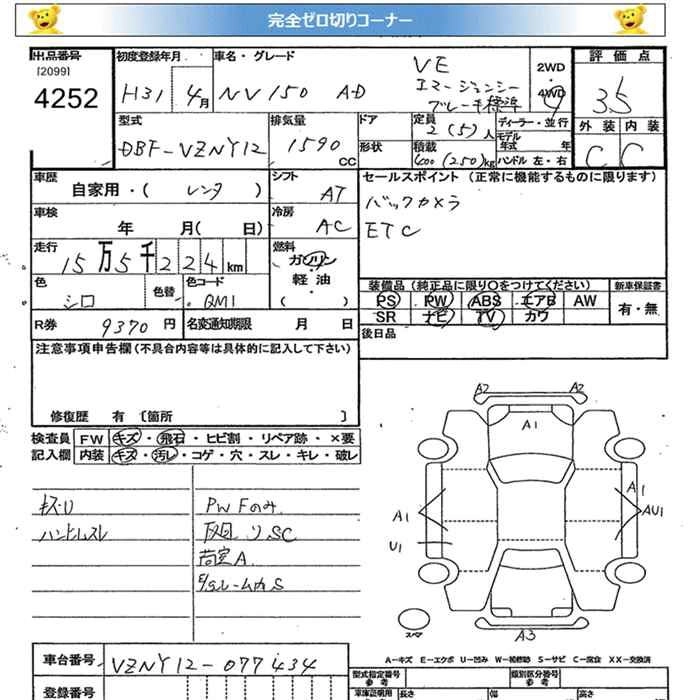 完全ゼロ切りコーナー
出品番号
[2099]
4252
初度登録年月
H31 4月
車名・グレード
NV150 AD
VE
エマージェンシー
ブレーキ標準
2WD
・
4WD
評価点
3.5
外装 内装
C C
型式
DBF-VZNY12
排気量
1590
CC
ドア
形状
定員
2(5)人
積載
600(250)kg
ディーラー・並行
モデル
年式 年
ハンドル 左・右
車歴
自家用・(レンタ)
シフト
AT
車検
年 月( 日)
冷房
AC
走行
15万5千224km
燃料
ガソリン
・
軽油
色
シロ
色替
色コード
QM1
R券 9370円
名変通知期限 月 日
セールスポイント(正常に機能するものに限ります)
バックカメラ
ETC
装備品(純正品に限り○をつけてください)
PS PW ABS エアB AW
SR ナビ TV カワ
新車保証書
有・無
後日品
注意事項申告欄(不具合内容等は具体的に記入して下さい)
修復歴 有[箇所 ]
検査員
記入欄
FW キズ・飛石・ヒビ割・リペア跡・×要
内装 キズ・汚レ・コゲ・穴・スレ・キレ・破レ
キズ・U
ハンドルスレ
PW Fのみ
SC
荷室A
A2 A2
A1
A1
U1
A1
AU1
A3
スペア
A-キズ E-エクボ U-凹み W-補修跡 S-サビ C-腐食 XX-交換済
車台番号 VZNY12-077434
登録番号
型式指定番号
参考
類別区分番号
参考
車庫証明用
参考
長さ
幅
高さ